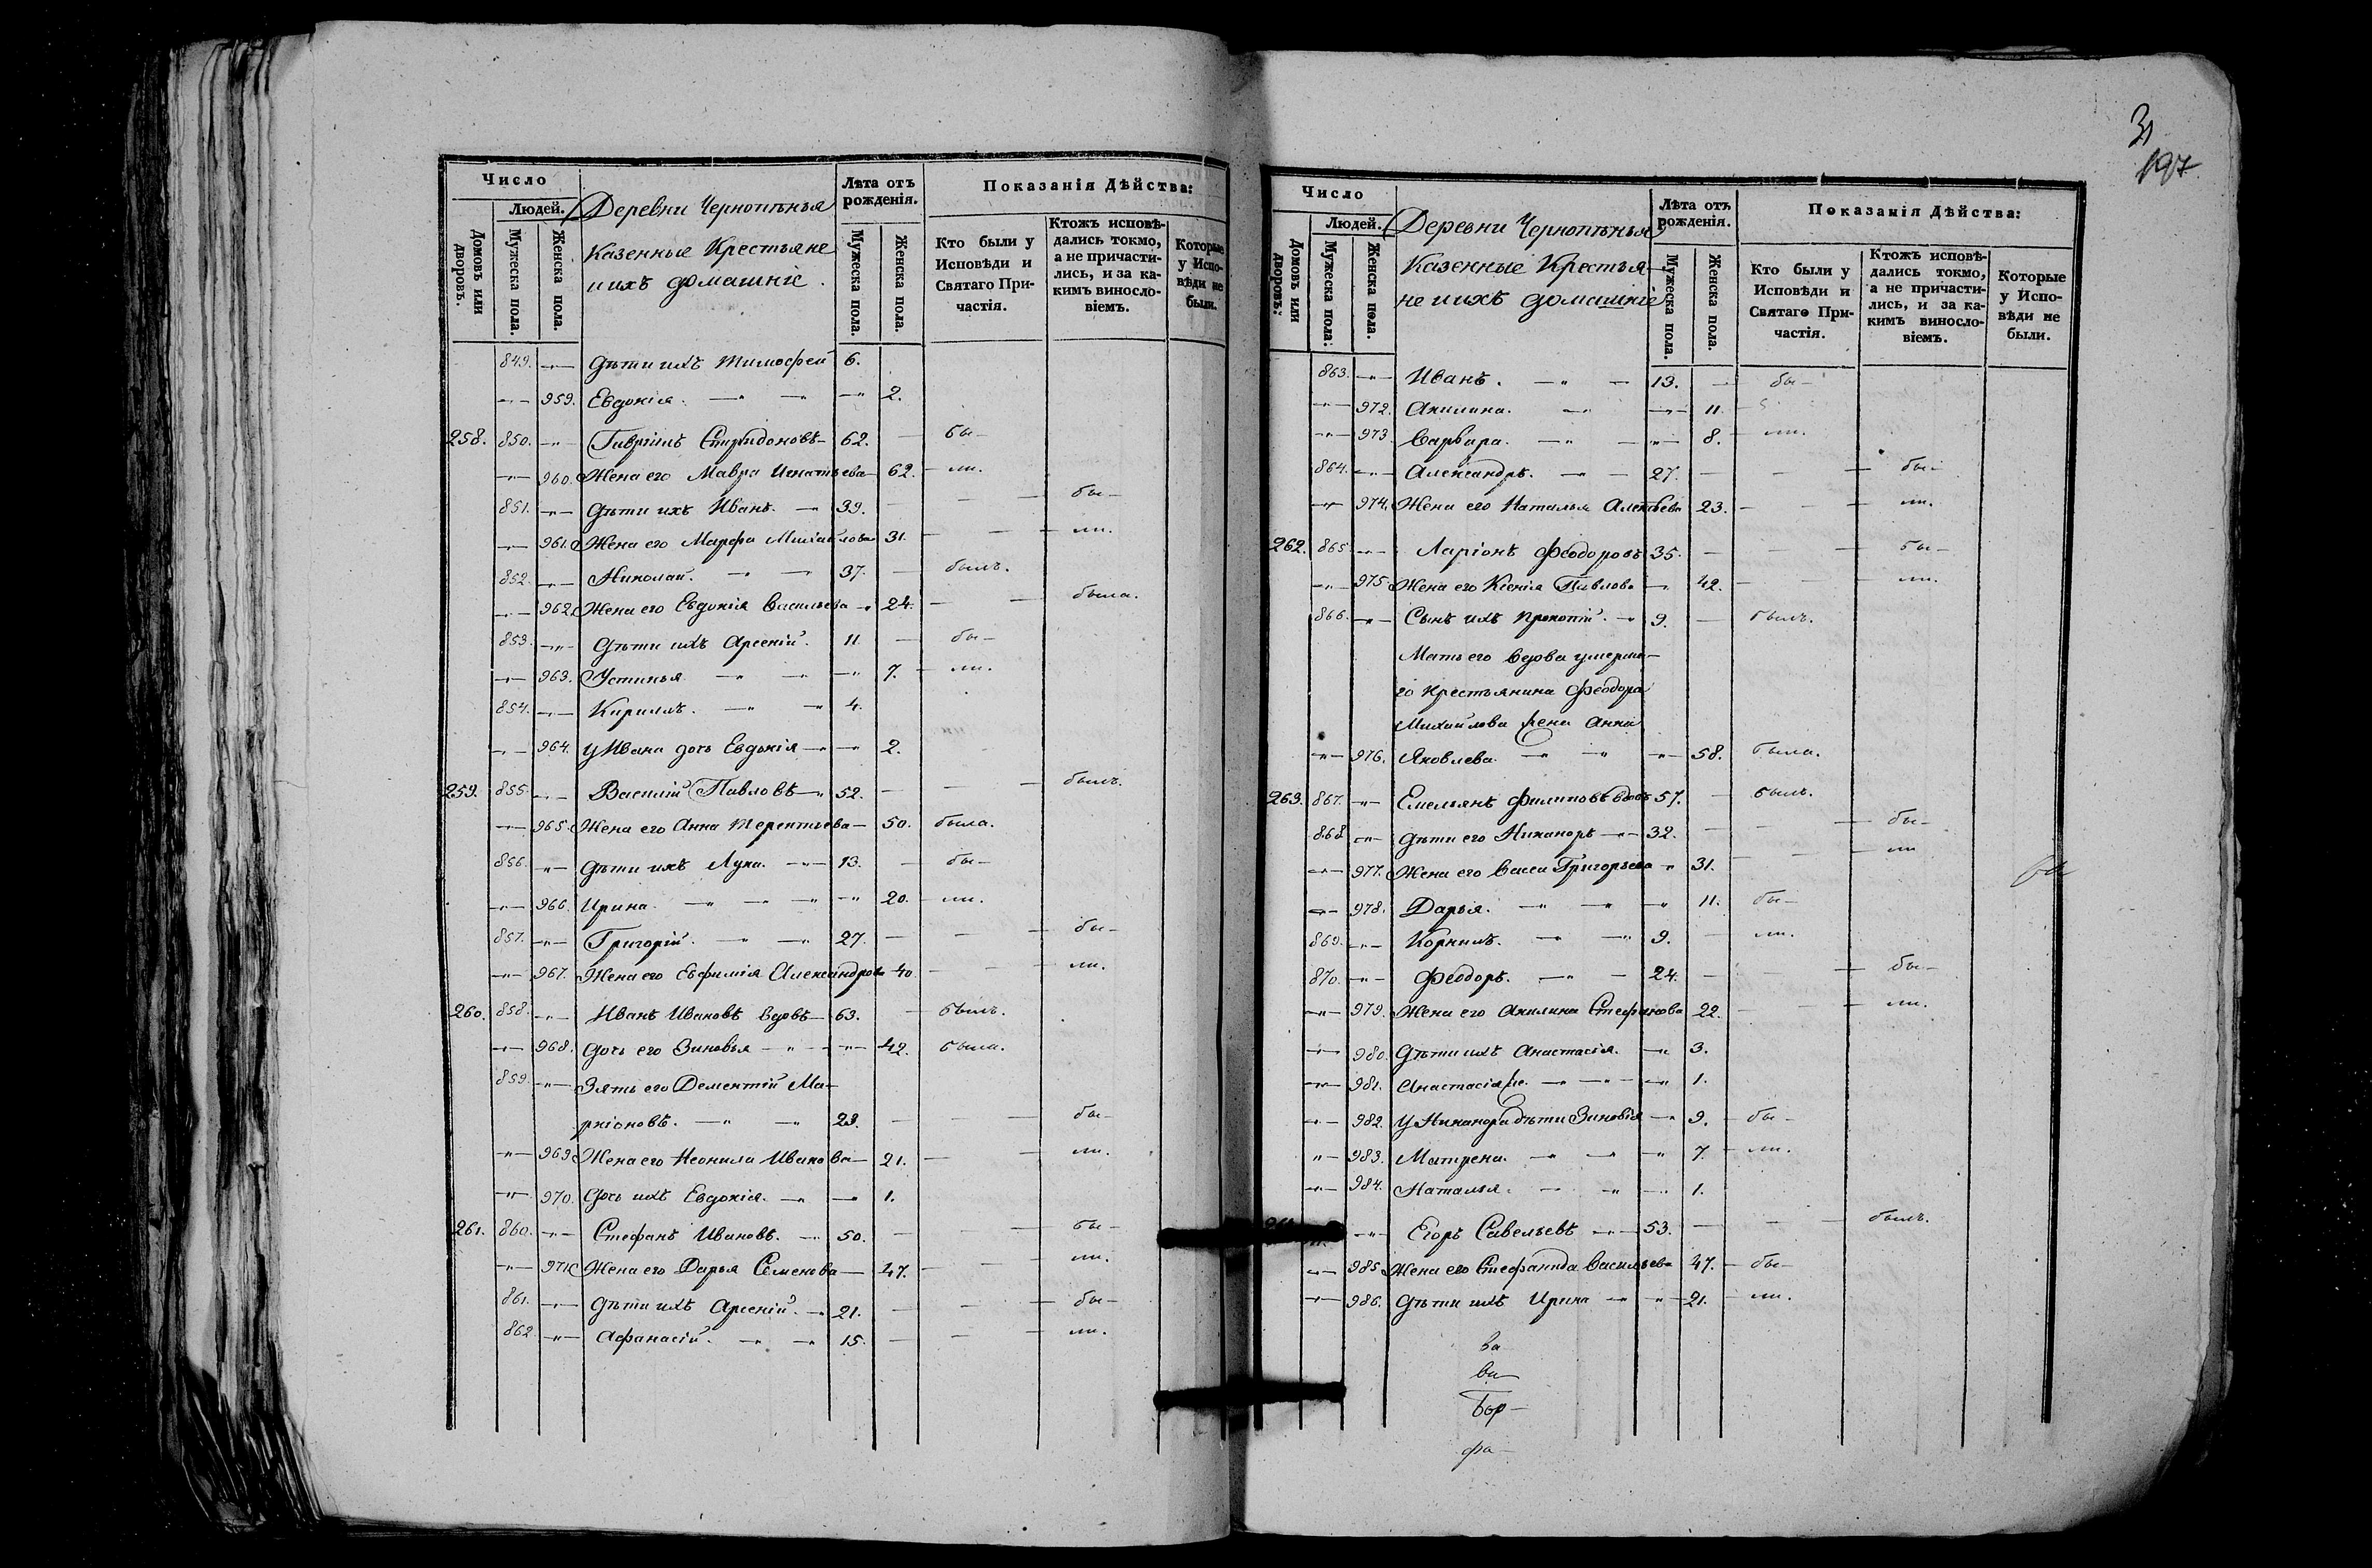 Число
Людей.
Домовъ или дворовъ.
Мужеска пола.
Женска пола.
Деревни Чернопѣнья
Казенные Крестьяне
и ихъ домашніе.
Лѣта отъ рожденія.
Мужеска пола.
Женска пола.
Показанія Дѣйства:
Кто были у Исповѣди и Святаго Причастія.
Ктожъ исповѣдались токмо, а не причастились, и за какимъ винословіемъ.
Которые у Исповѣди не были.
849. —"— Дѣти ихъ Тимофей 6.
—"— 959. Евдокія. —"— —"— 2.
258. 850. —"— Гавріилъ Спиридоновъ — 62. — бы-
—"— 960. Жена его Мавра Игнатьева — 62. — ли.
851. —"— Дѣти ихъ Иванъ. —"— 39. — — — бы-
—"— 961. Жена его Марфа Михайлова 31. — — — ли.
852. —"— Николай. —"— —"— 37. — былъ.
—"— 962. Жена его Евдокія Васильева —"— 24. — — была.
853. —"— Дѣти ихъ Арсеній. 11 — бы-
—"— 963. Устинья —"— —"— 7. — ли.
854. —"— Кириллъ. —"— —"— 4.
—"— 964. У Ивана дочь Евдокія —"— 2.
259. 855. —"— Василій Павловъ —"— 52. — — — былъ.
—"— 965. Жена его Анна Терентьева — 50. была.
856. —"— Дѣти ихъ Лука. —"— 13. — бы-
—"— 966. Ирина. —"— —"— 20. — ли.
857. —"— Григорій. —"— —"— 27. — — — бы-
—"— 967. Жена его Евфимія Александрова 40. — — — ли.
260. 858. —"— Иванъ Ивановъ вдовъ — 63. — былъ.
—"— 968. Дочь его Зиновья —"— —"— 42. была.
859. —"— Зять его Дементій Ма-
ркіоновъ. —"— —"— 23. — — — бы-
—"— 969. Жена его Неонила Иванова — 21. — — ли.
—"— 970. Дочь ихъ Евдокія. —"— —"— 1.
261. 860. —"— Стефанъ Ивановъ. —"— 50. — — — бы-
—"— 971. Жена его Дарья Семенова — 47. — — ли.
861. —"— Дѣти ихъ Арсеній. —"— 21. — — — бы-
862. —"— Афанасій. —"— —"— 15. — — — ли.
31
197
Число
Людей.
Домовъ или дворовъ:
Мужеска пола:
Женска пола.
Деревни Чернопѣнья
Казенные Крестья-
не и ихъ домашніе
Лѣта отъ рожденія.
Мужеска пола.
Женска пола.
Показанія Дѣйства:
Кто были у Исповѣди и Святаго Причастія.
Ктожъ исповѣдались токмо, а не причастились, и за какимъ винословіемъ.
Которые у Исповѣди не были.
863. —"— Иванъ. —"— — 13. — бы-
—"— 972. Акилина. —"— —"— 11.
—"— 973. Варвара. —"— —"— 8. — ли.
864. —"— Александръ. —"— — 27. — — — бы-
—"— 974. Жена его Наталья 23. — — — ли.
262. 865. —"— Ларіонъ Феодоровъ 35. — — — бы-
—"— 975. Жена его Ксенія Павлова —"— 42. — — ли.
866. —"— Сынъ ихъ Прокопій. —"— 9. — былъ.
Мать его вдова умерша-
го крестьянина Феодора
Михайлова жена Анна
—"— 976. Яковлева. —"— —"— —"— 58. была.
263. 867. —"— Емельянъ Филиповъ вдовъ 57. — былъ.
868. —"— Дѣти его Никаноръ —"— 32. — — — бы-
—"— 977. Жена его Васса Григорьева —"— 31. — — — ли
—"— 978. Дарья. —"— —"— —"— 11. бы-
869. —"— Корнилъ. —"— —"— 9. — ли.
870. —"— Феодоръ. —"— — 24. — — — бы-
—"— 979. Жена его Акилина Стефанова 22. — — — ли.
—"— 980. Дѣти ихъ Анастасія. —"— 3.
—"— 981. Анастасія же. —"— —"— —"— 1.
—"— 982. У Никанора дѣти Зиновія —"— 9. — бы-
—"— 983. Матрена. —"— —"— —"— 7. — ли.
—"— 984. Наталья. — —"— —"— 1.
—"— Егоръ Савельевъ —"— 53. — — — былъ.
—"— 985. Жена его Стефанида Васильева 47. — бы-
—"— 986. Дѣти ихъ Ирина —"— —"— 21. — ли.
ва
ва
Бор-
фа-